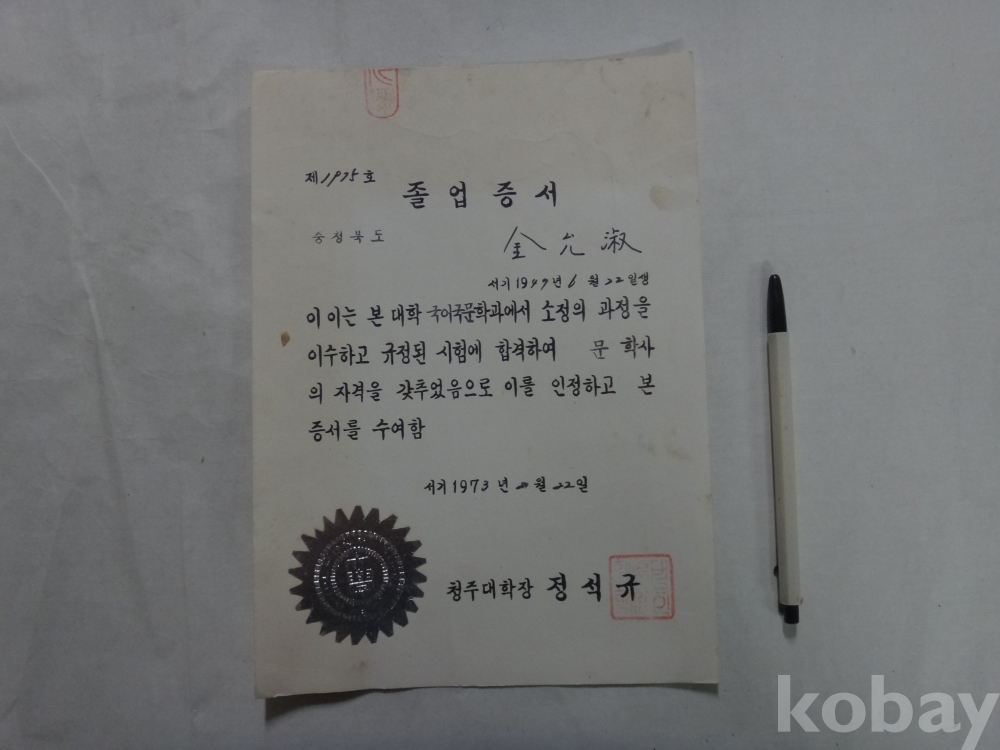 제1975호
졸업증서
충청북도
金允淑
서기1949년 6월 22일생
이 이는 본 대학 국어국문학과에서 소정의 과정을
이수하고 규정된 시험에 합격하여 문학사
의 자격을 갖추었음으로 이를 인정하고 본
증서를 수여함
서기1973년 2월 22일
청주대학장 정석규
kobay